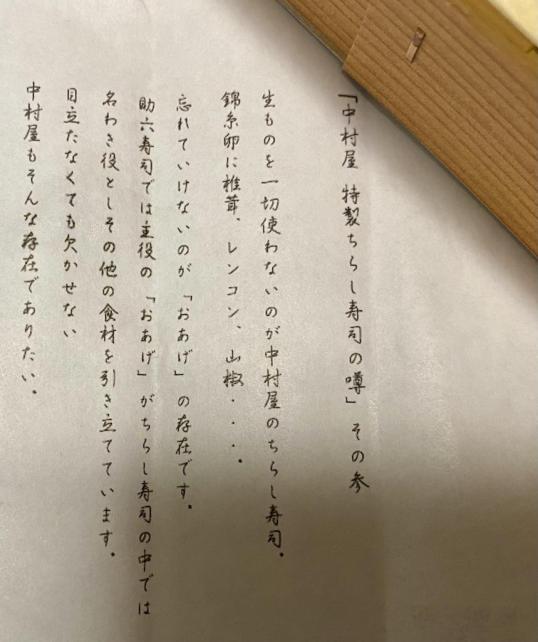 「中村屋 特製ちらし寿司の噂」その参
生ものを一切使わないのが中村屋のちらし寿司。
錦糸卵に椎茸、レンコン、山椒・・・。
忘れていけないのが「おあげ」の存在です。
助六寿司では主役の「おあげ」がちらし寿司の中では
名わき役としその他の食材を引き立てています。
目立たなくても欠かせない
中村屋もそんな存在でありたい。